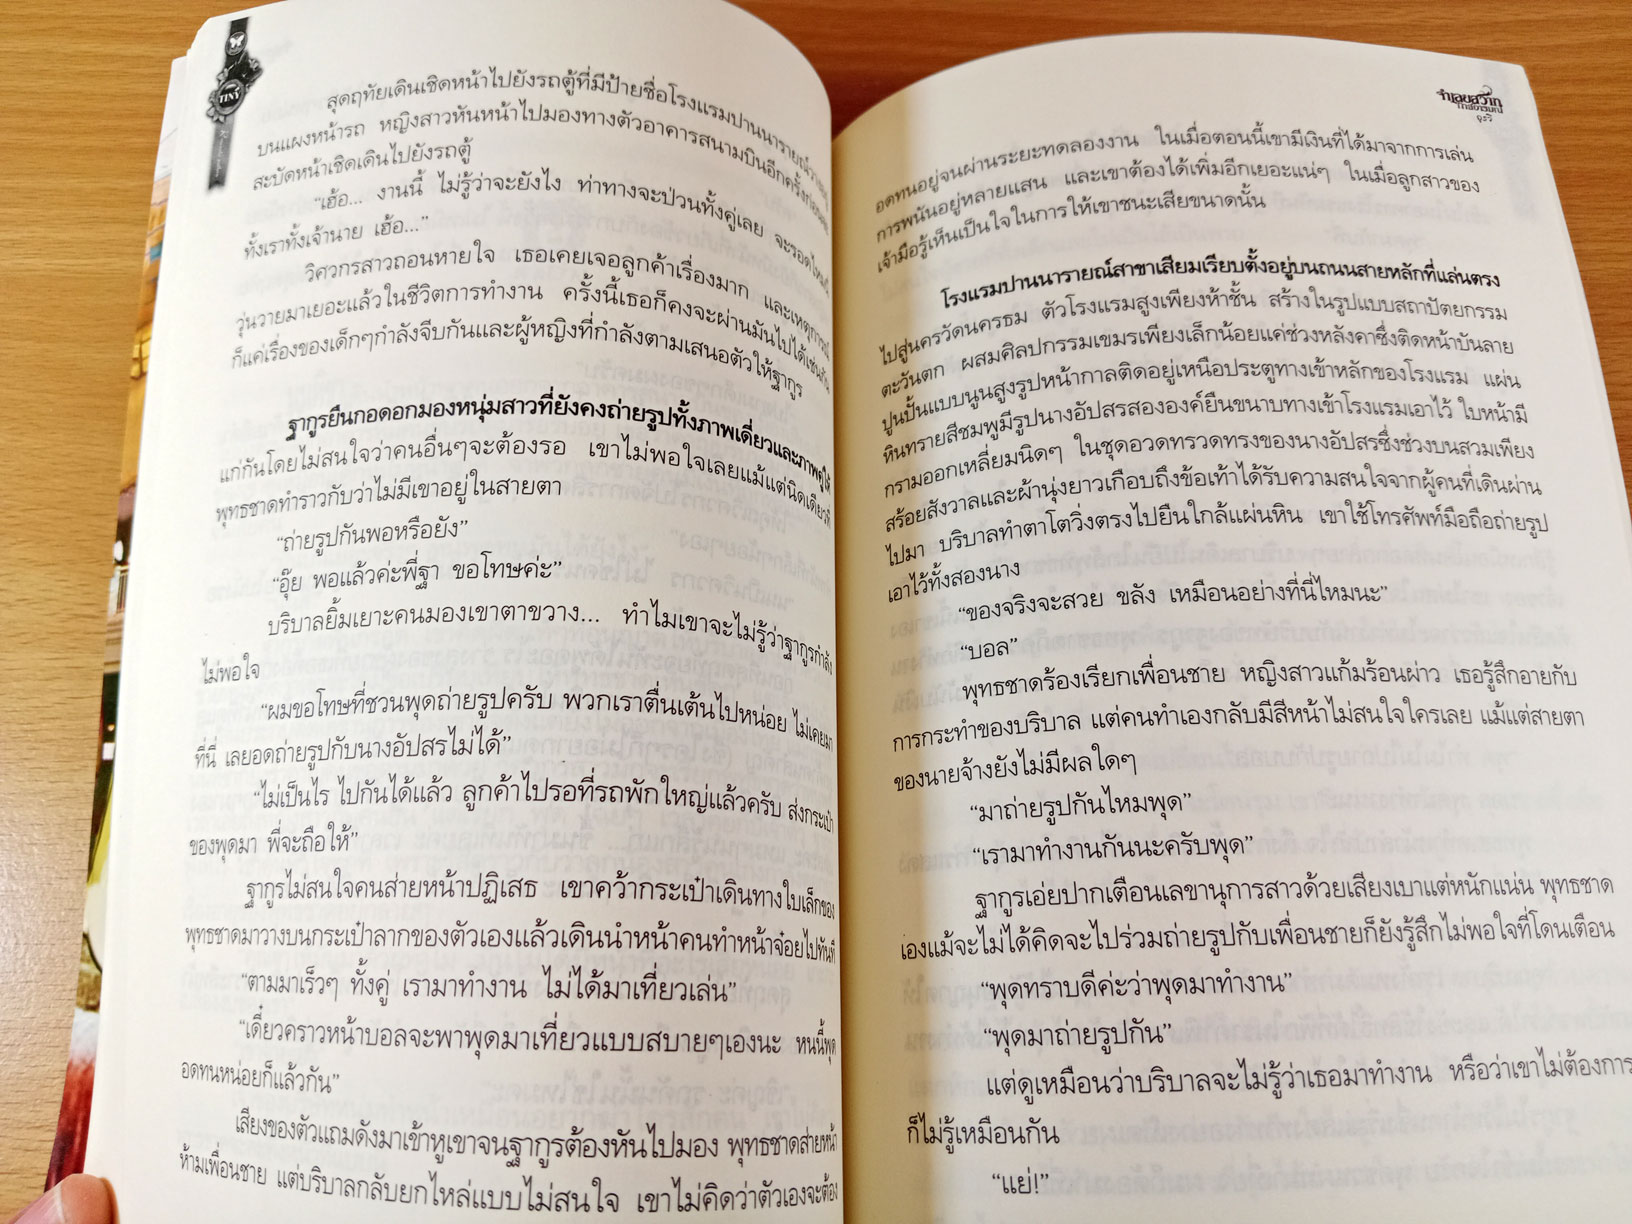 TINY
สุดฤทัยเดินเชิดหน้าไปยังรถตู้ที่มีป้ายชื่อโรงแรมปานนารายณ์วางอยู่
บนแผงหน้ารถ หญิงสาวหันหน้าไปมองทางตัวอาคารสนามบินอีกครั้งก่อนจะ
สะบัดหน้าเชิดเดินไปยังรถตู้
“เฮ้อ... งานนี้ ไม่รู้ว่าจะยังไง ท่าทางจะป่วนทั้งคู่เลย จะรอดไหมนี่
ทั้งเราทั้งเจ้านาย เฮ้อ...”
วิศวกรสาวถอนหายใจ เธอเคยเจอลูกค้าเรื่องมาก และเหตุการณ์
วุ่นวายมาเยอะแล้วในชีวิตการทำงาน ครั้งนี้เธอก็คงจะผ่านมันไปได้เช่นกัน
ก็แค่เรื่องของเด็กๆกำลังจีบกันและผู้หญิงที่กำลังตามเสนอตัวให้ฐากูร
ฐากูรยืนกอดอกมองหนุ่มสาวที่ยังคงถ่ายรูปทั้งภาพเดี่ยวและภาพคู่ให้
แก่กันโดยไม่สนใจว่าคนอื่นๆจะต้องรอ เขาไม่พอใจเลยแม้แต่นิดเดียวที่
พุทธชาดทำราวกับว่าไม่มีเขาอยู่ในสายตา
“ถ่ายรูปกันพอหรือยัง”
“อุ๊ย พอแล้วค่ะพี่ฐา ขอโทษค่ะ”
บริบาลยิ้มเยาะคนมองเขาตาขวาง... ทำไมเขาจะไม่รู้ว่าฐากูรกำลัง
ไม่พอใจ
“ผมขอโทษที่ชวนพุดถ่ายรูปครับ พวกเราตื่นเต้นไปหน่อย ไม่เคยมา
ที่นี่ เลยอดถ่ายรูปกับนางอัปสรไม่ได้”
“ไม่เป็นไร ไปกันได้แล้ว ลูกค้าไปรอที่รถพักใหญ่แล้วครับ ส่งกระเป๋า
ของพุดมา พี่จะถือให้”
ฐากูรไม่สนใจคนส่ายหน้าปฏิเสธ เขาคว้ากระเป๋าเดินทางใบเล็กของ
พุทธชาดมาวางบนกระเป๋าลากของตัวเองแล้วเดินนำหน้าคนทำหน้าจ๋อยไปทันที
“ตามมาเร็วๆ ทั้งคู่ เรามาทำงาน ไม่ได้มาเที่ยวเล่น”
“เดี๋ยวคราวหน้าบอลจะพาพุดมาเที่ยวแบบสบายๆเองนะ หนนี้พุด
อดทนหน่อยก็แล้วกัน”
เสียงของตัวแถมดังมาเข้าหูเขาจนฐากูรต้องหันไปมอง พุทธชาดส่ายหน้า
ห้ามเพื่อนชาย แต่บริบาลกลับยกไหล่แบบไม่สนใจ เขาไม่คิดว่าตัวเองจะต้อง
จำเลยสวาท
อดทนอยู่จนผ่านระยะทดลองงาน ในเมื่อตอนนี้เขามีเงินที่ได้มาจากการเล่น
การพนันอยู่หลายแสน และเขาต้องได้เพิ่มอีกเยอะแน่ๆ ในเมื่อลูกสาวของ
เจ้ามือรู้เห็นเป็นใจในการให้เขาชนะเสียขนาดนั้น
โรงแรมปานนารายณ์สาขาเสียมเรียบตั้งอยู่บนถนนสายหลักที่แล่นตรง
ไปสู่นครวัดนครธม ตัวโรงแรมสูงเพียงห้าชั้น สร้างในรูปแบบสถาปัตยกรรม
ตะวันตก ผสมศิลปกรรมเขมรเพียงเล็กน้อยแค่ช่วงหลังคาซึ่งติดหน้าบันลาย
ปูนปั้นแบบนูนสูงรูปหน้ากาลติดอยู่เหนือประตูทางเข้าหลักของโรงแรม แผ่น
หินทรายสีชมพูมีรูปนางอัปสรสององค์ยืนขนาบทางเข้าโรงแรมเอาไว้ ใบหน้ามี
กรามออกเหลี่ยมนิดๆ ในชุดอวดทรวดทรงของนางอัปสรซึ่งช่วงบนสวมเพียง
สร้อยสังวาลและผ้านุ่งยาวเกือบถึงข้อเท้าได้รับความสนใจจากผู้คนที่เดินผ่าน
ไปมา บริบาลทำตาโตวิ่งตรงไปยืนใกล้แผ่นหิน เขาใช้โทรศัพท์มือถือถ่ายรูป
เอาไว้ทั้งสองนาง
“ของจริงจะสวย ขลัง เหมือนอย่างที่นี่ไหมนะ”
“บอล”
พุทธชาดร้องเรียกเพื่อนชาย หญิงสาวแก้มร้อนผ่าว เธอรู้สึกอายกับ
การกระทำของบริบาล แต่คนทำเองกลับมีสีหน้าไม่สนใจใครเลย แม้แต่สายตา
ของนายจ้างยังไม่มีผลใดๆ
“มาถ่ายรูปกันไหมพุด”
“เรามาทำงานกันนะครับพุด”
ฐากูรเอ่ยปากเตือนเลขานุการสาวด้วยเสียงเบาแต่หนักแน่น พุทธชาด
เองแม้จะไม่ได้คิดจะไปร่วมถ่ายรูปกับเพื่อนชายก็ยังรู้สึกไม่พอใจที่โดนเตือน
“พุดทราบดีค่ะว่าพุดมาทำงาน”
“พุดมาถ่ายรูปกัน”
แต่ดูเหมือนว่าบริบาลจะไม่รู้ว่าเธอมาทำงาน หรือว่าเขาไม่ต้องการ
ก็ไม่รู้เหมือนกัน
“แย่!”